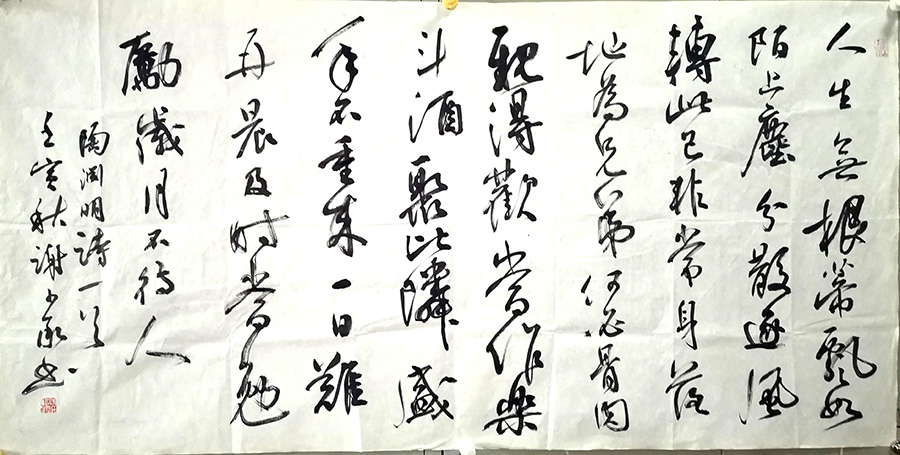 人生無根蒂飄如
陌上塵分散逐風
轉此已非常身落
地為兄弟何必骨肉
親得歡當作樂
斗酒聚比隣盛
年不重來一日難
再晨及时當勉
勵歲月不待人
陶渊明詩一首
壬寅秋謝少承书